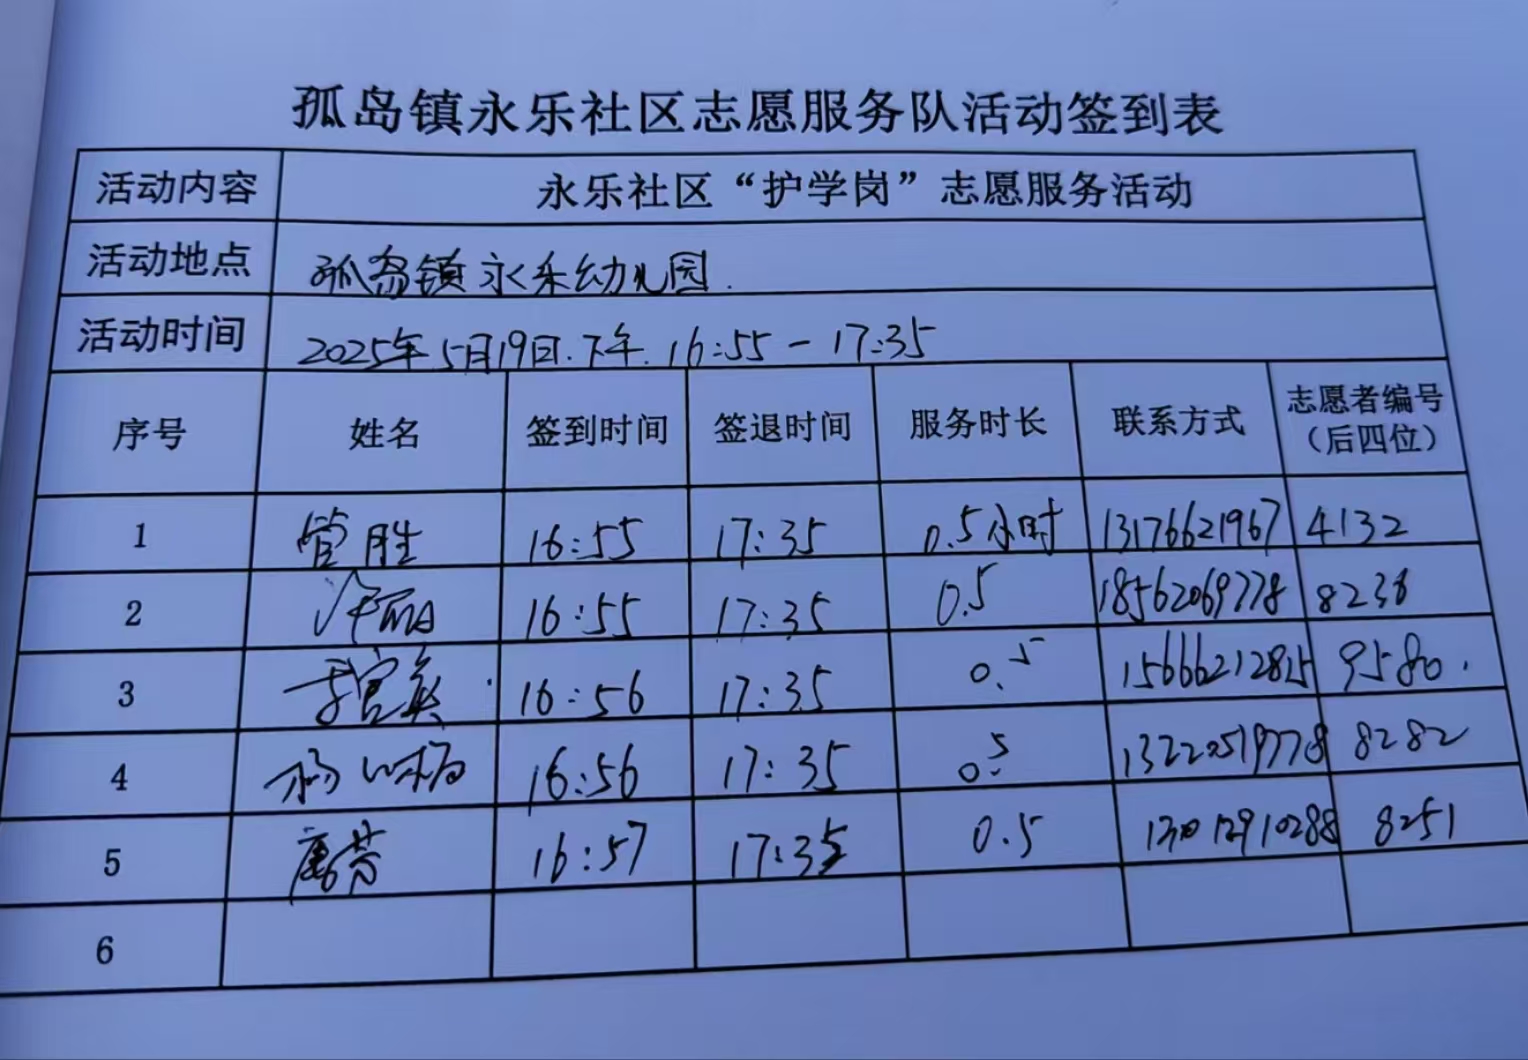 孤岛镇永乐社区志愿服务队活动签到表
活动内容 永乐社区“护学岗”志愿服务活动
活动地点 孤岛镇永乐幼儿园.
活动时间 2025年5月19日.下午.16:55-17:35
序号 姓名 签到时间 签退时间 服务时长 联系方式 志愿者编号（后四位）
1 管胜 16:55 17:35 0.5小时 13176621967 4132
2 16:55 17:35 0.5 18562069778 8238
3 16:56 17:35 0.5 15666212815 9580.
4 16:56 17:35 0.5 13220519778 8282
5 唐芳 16:57 17:35 0.5 13012910288 8251
6